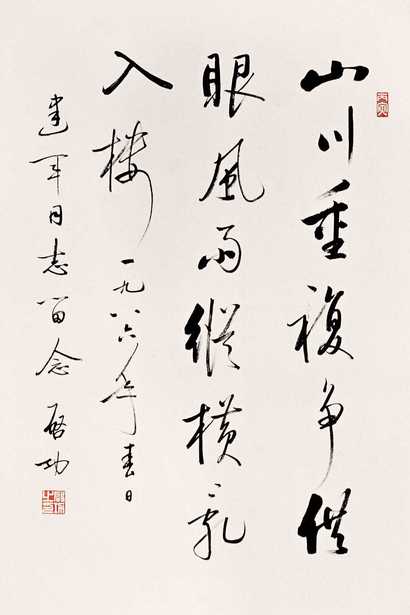 山川重複争供
眼風雨縱橫亂
入樓 一九八六年春日
建军同志留念 啟功